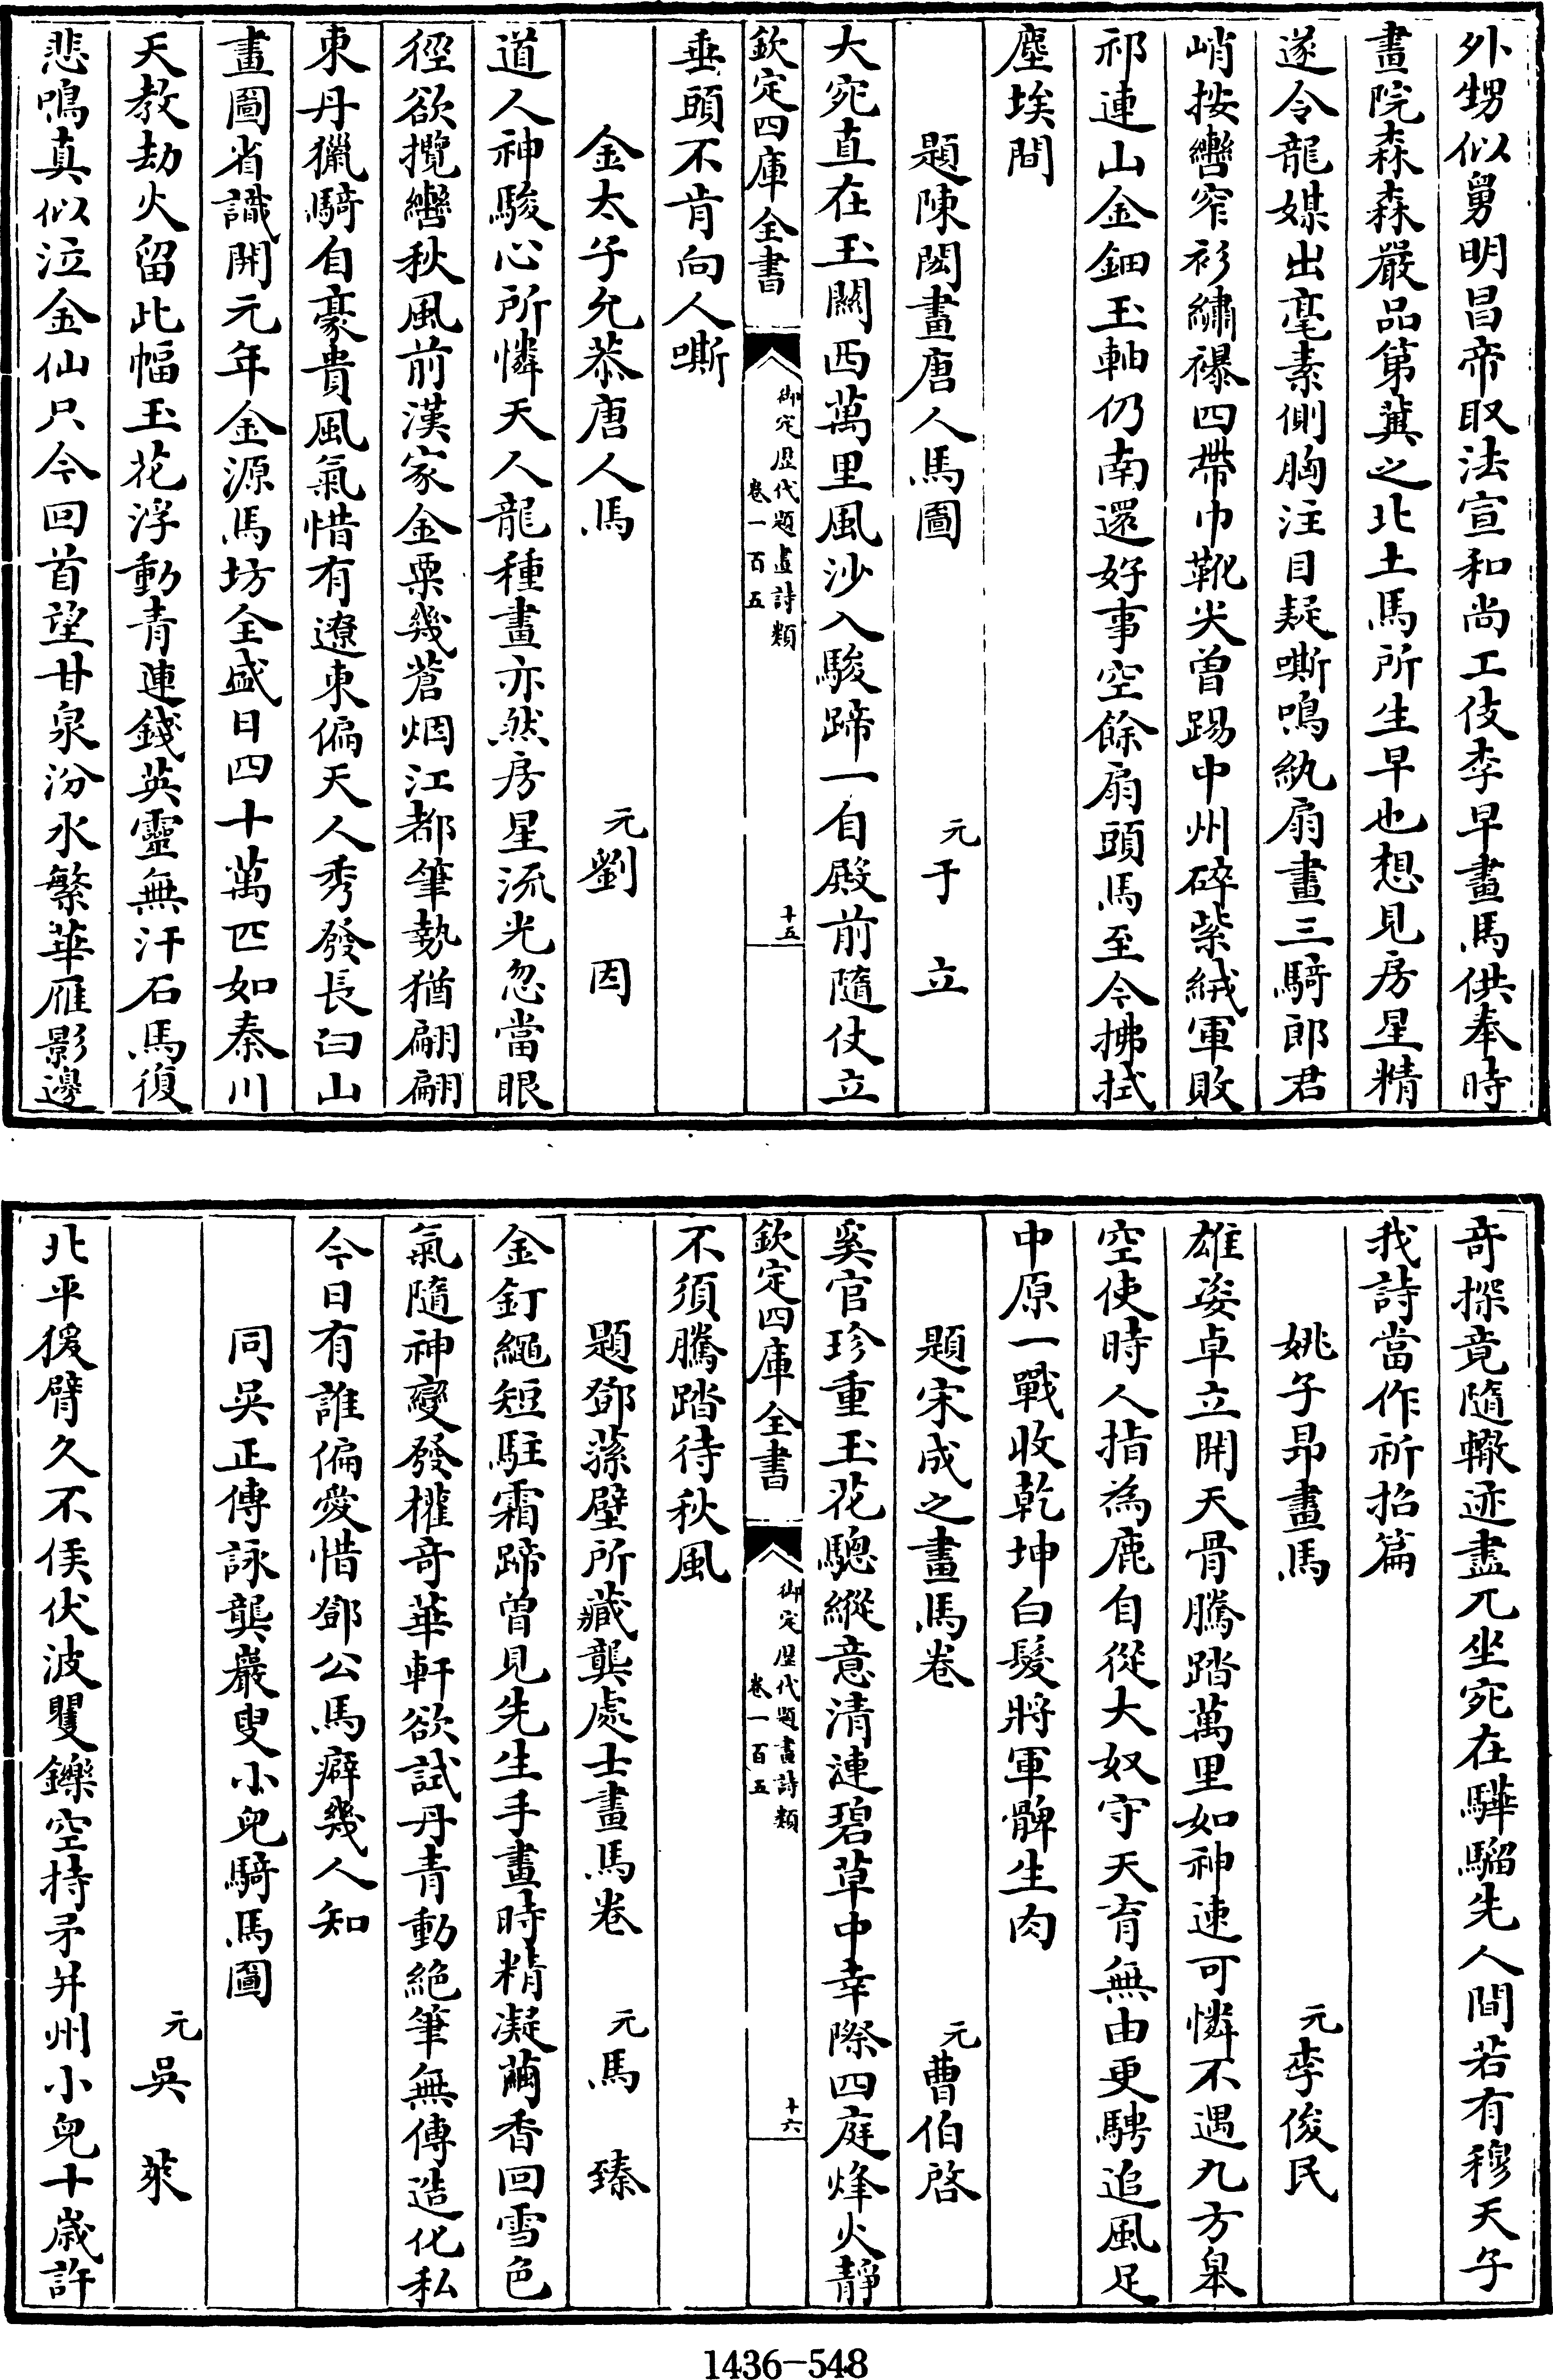 外甥似舅明昌帝取法宣和尚工伎李早畫馬供奉時
畫院森森嚴品第冀之北土馬所生早也想見房星精
遂令龍媒出毫素側胸注目疑嘶鳴紈扇畫三騎郎君
峭按轡窄衫繡襮四帶巾靴尖曾踢中州碎紫絨軍敗
祁連山金鈿玉軸仍南還好事空餘扇頭馬至今拂拭
塵埃間
題陳閎畫唐人馬圖　元于立
大宛直在玉關西萬里風沙入駿蹄一自殿前隨仗立
欽定四庫全書　御定歷代題畫詩類　卷一百五　十五
垂頭不肯向人嘶
金太子允恭唐人馬　元劉因
道人神駿心所憐天人龍種畫亦然房星流光忽當眼
徑欲攬轡秋風前漢家金粟幾蒼烟江都筆勢猶翩翩
東丹獵騎自豪貴風氣惜有遼東偏天人秀發長白山
畫圖省識開元年金源馬坊全盛日四十萬匹如秦川
天教劫火留此幅玉花浮動青連錢英靈無汗石馬復
悲鳴真似泣金仙只今回首望甘泉汾水繁華雁影邊
奇探竟隨轍迹盡兀坐宛在驊騮先人間若有穆天子
我詩當作祈招篇
姚子昂畫馬　元李俊民
雄姿卓立開天骨騰踏萬里如神速可憐不遇九方臯
空使時人指為鹿自從大奴守天育無由更騁追風足
中原一戰收乾坤白髮將軍髀生肉
題宋成之畫馬卷　元曹伯啓
奚官珍重玉花驄縱意清漣碧草中幸際四庭烽火靜
欽定四庫全書　御定歷代題畫詩類　卷一百五　十六
不須騰踏待秋風
題鄧蓀壁所藏龔處士畫馬卷　元馬臻
金釘繩短駐霜蹄曾見先生手畫時精凝繭香回雪色
氣隨神變發權奇華軒欲試丹青動絶筆無傳造化私
今日有誰偏愛惜鄧公馬癖幾人知
同吳正傳詠龔巖叟小兒騎馬圖
元吳萊
北平猨臂久不侯伏波矍鑠空持矛并州小兒十歲許
1436-548